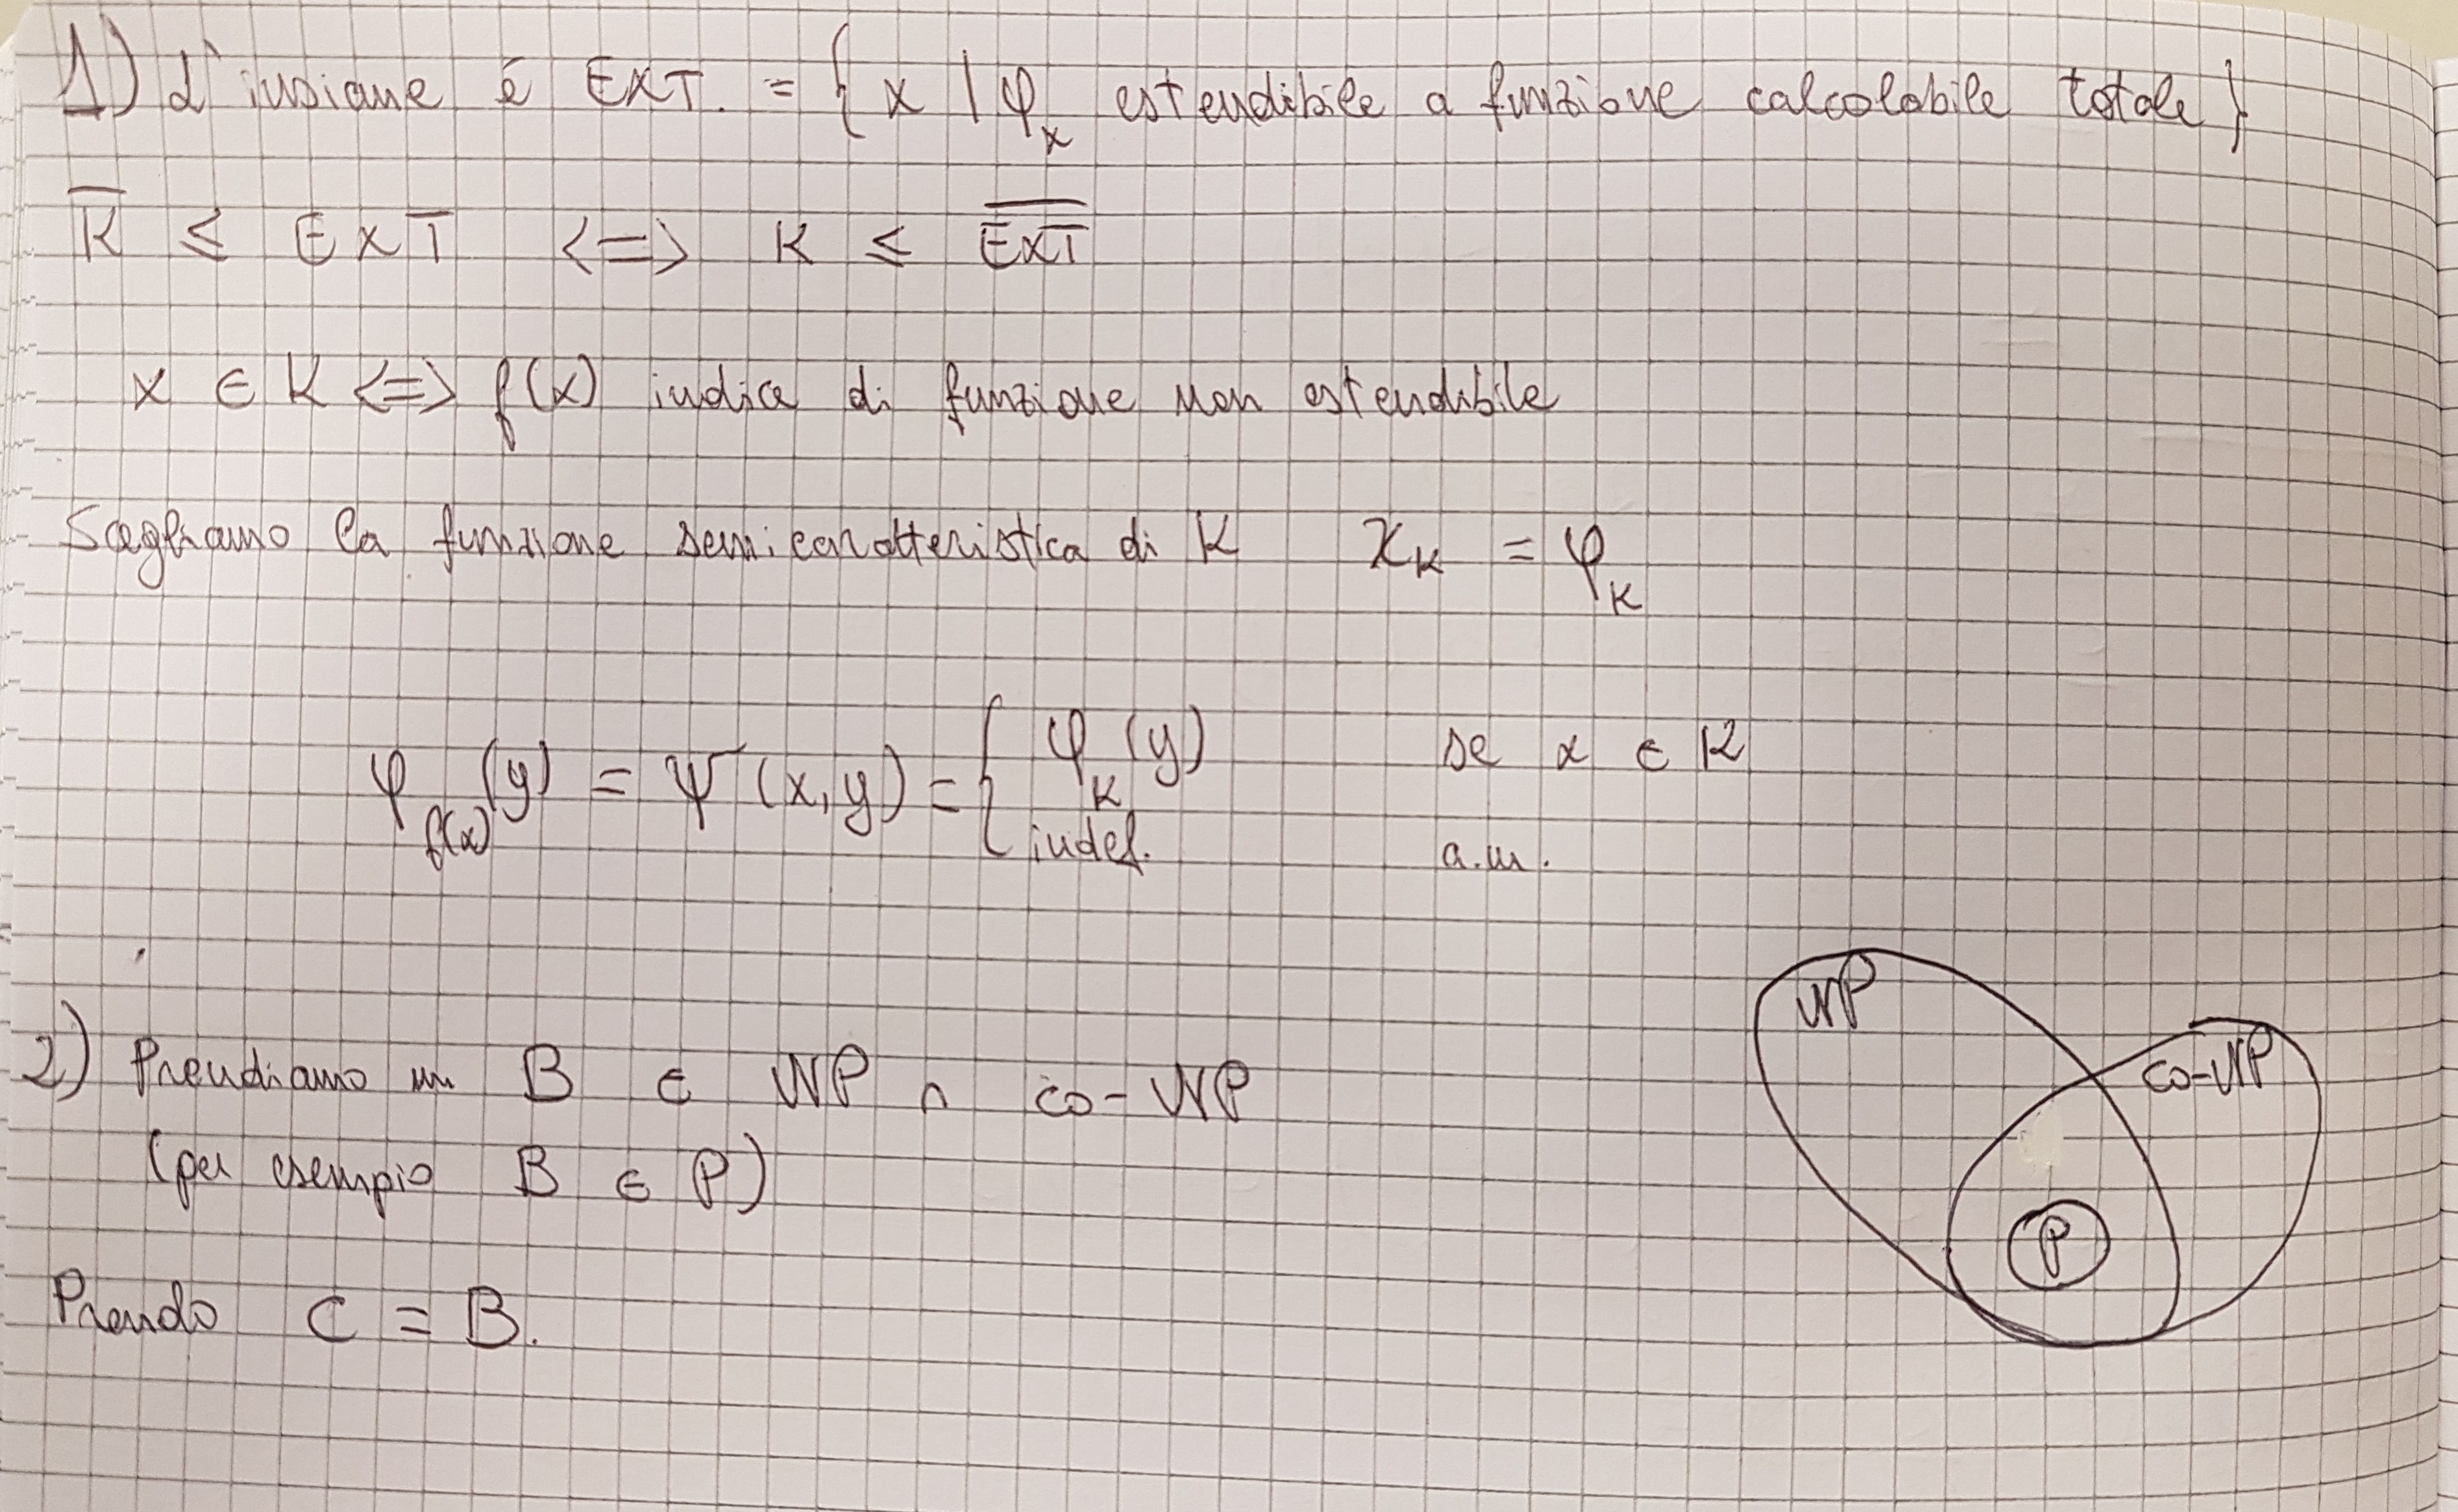 1) L'insieme è EXT. = { x | φ_x estendibile a funzione calcolabile totale }
K̅ ≤ EXT <=> K ≤ E̅X̅T̅
x ∈ K <=> f(x) indice di funzione non estendibile
Scegliamo la funzione semicaratteristica di K χ_K = φ_K
φ_f(x) (y) = ψ (x, y) = { φ_K (y) se x ∈ K
indef. a.m.
2) Prendiamo un B ∈ NP ∩ co-NP
(per esempio B ∈ P)
Prendo C = B.
NP
co-NP
P